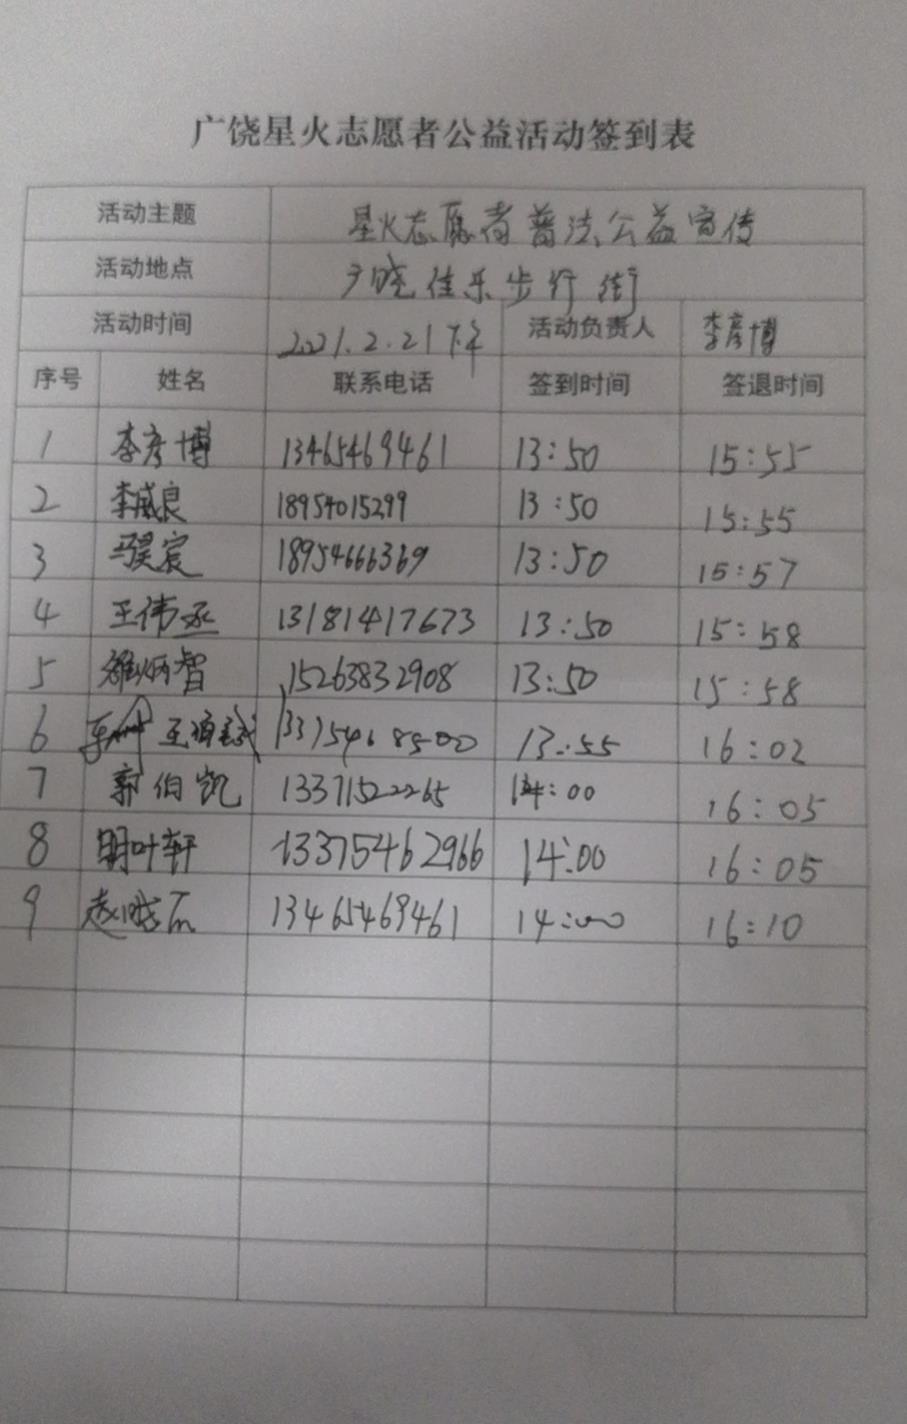 广饶星火志愿者公益活动签到表
活动主题 星火志愿者普法公益宣传
活动地点 广饶佳乐步行街
活动时间 2021.2.21下午 活动负责人 李彦博
序号 姓名 联系电话 签到时间 签退时间
1 李彦博 13465469461 13:50 15:55
2 李威良 18954015299 13:50 15:55
3 马昊宸 18954666369 13:50 15:57
4 王伟丞 13181417673 13:50 15:58
5 炳智 15263832908 13:50 15:58
6 王 13375468500 13:55 16:02
7 郭伯凯 13371522265 14:00 16:05
8 明叶轩 13375462966 14:00 16:05
9 赵 13465469461 14:00 16:10